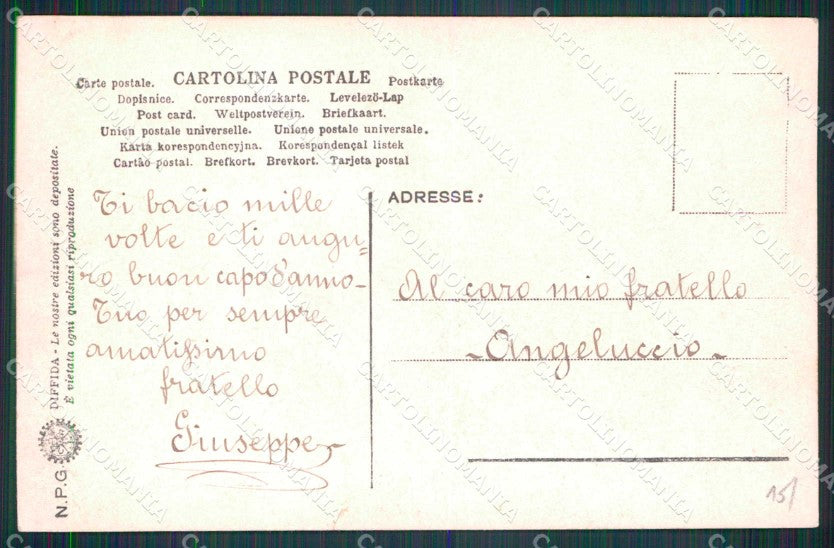 Carte postale. CARTOLINA POSTALE Postkarte
Dopisnice. Correspondenzkarte. Levelező-Lap
Post card. Weltpostverein. Briefkaart.
Union postale universelle. Unione postale universale.
Karta korespondencyjna. Korespondençal listek
Cartão postal. Brefkort. Brevkort. Tarjeta postal
Ti bacio mille
volte e ti augu-
ro buon capod'anno-
Tuo per sempre
amatissimo
fratello
Giuseppe
ADRESSE:
Al caro mio fratello
-Angeluccio-
N.P.G. DIFFIDA - Le nostre edizioni sono depositate.
È vietata ogni qualsiasi riproduzione
15/
CARTOLINOMANIA